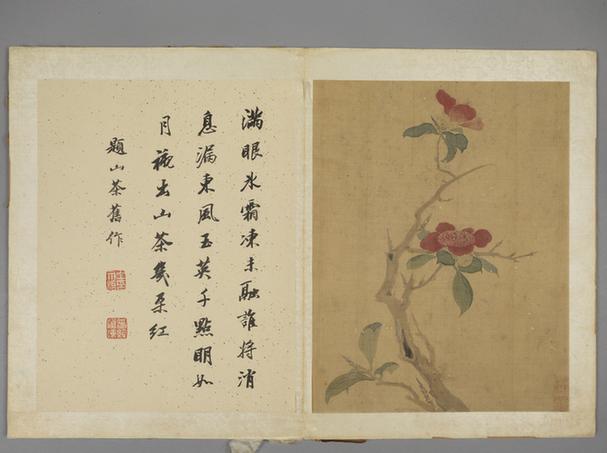 滿眼冰霜凍未融誰將消
息漏東風玉英千點明如
月襯出山茶幾朵紅
題山茶舊作